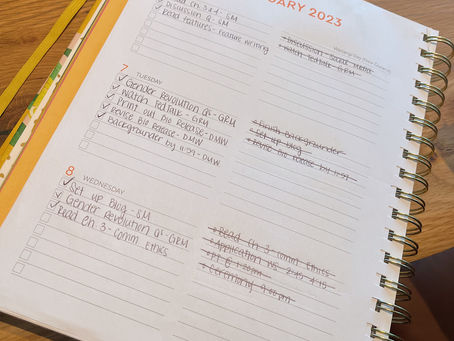 UARY 2023
Read Ch 3+4 - SM
Discussion Q - SM
Read features - Feature Writing
Discussion - Social Media
Watch TedTalk - GRM
7 TUESDAY
Gender Revolution Q's - GRM
Watch TedTalk - GRM
Print out Bio Release - DMW
Revise Bio Release - DMW
Backgrounder by 11:59 - DMW
Finish Backgrounder
Set up blog
Revise Bio release by 11:59
8 WEDNESDAY
Set up Blog - SM
Gender Revolution Q's - GRM
Read Ch 3 - Comm Ethics
Read Ch 3 - Comm Ethics
Application WS 2:45-4:15
Ceremony 9:00pm